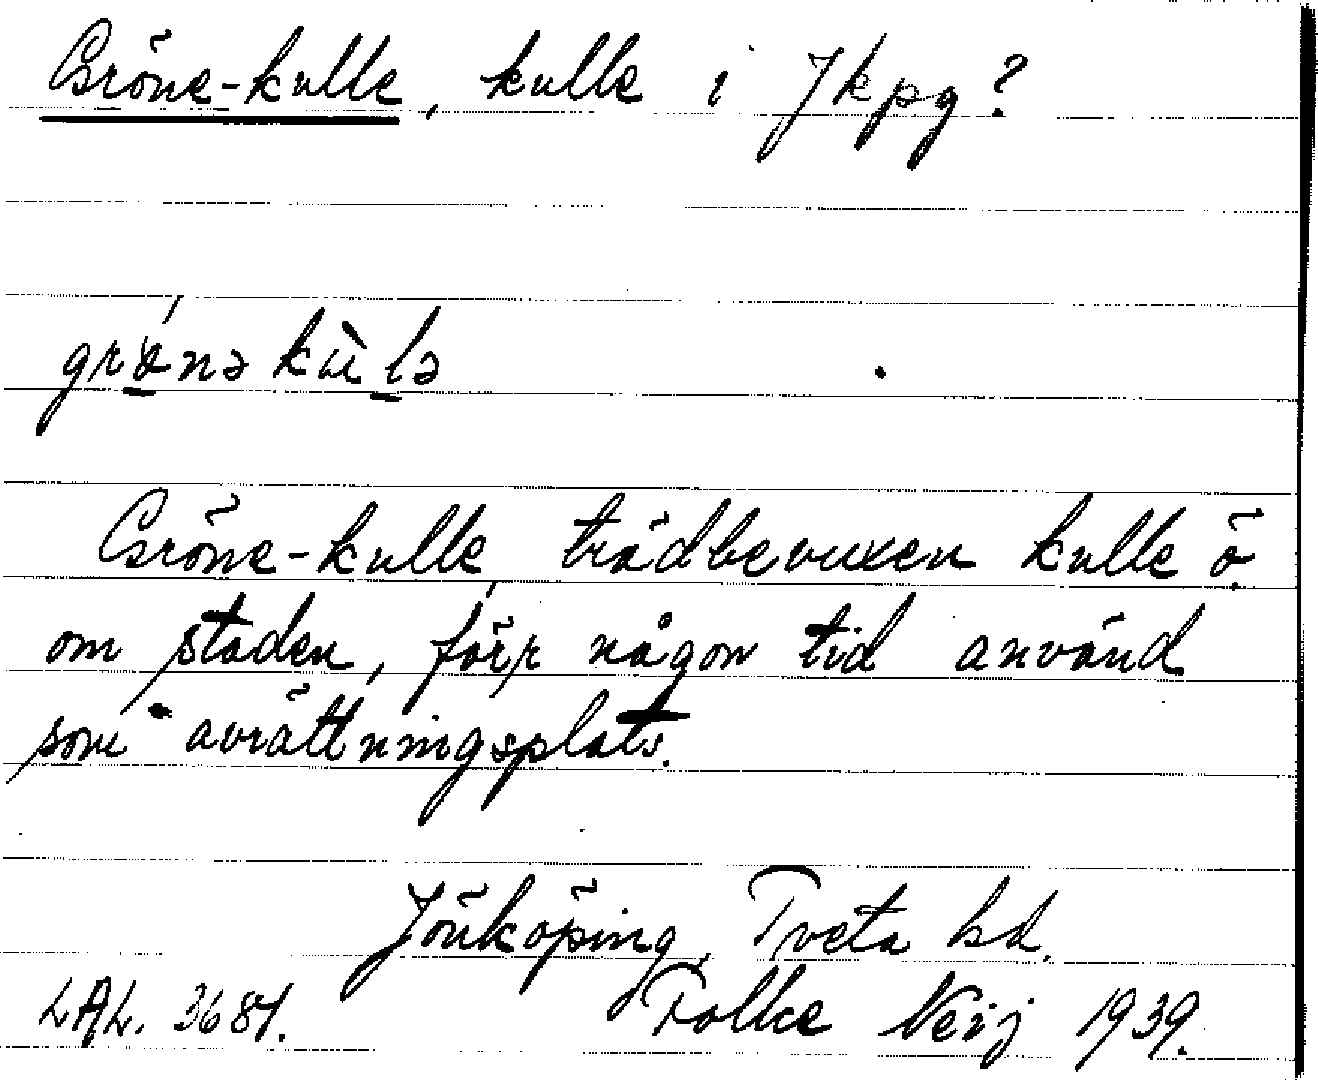 Gröne-kulle, kulle i Jkpg?
grǿ̱nə kù̱lə
Gröne-kulle, trädbevuxen kulle ö.
om staden, förr någon tid använd
som avrättningsplats.
Jönköping, Tveta hd.
LAL. 3684. Folke Neij 1939.